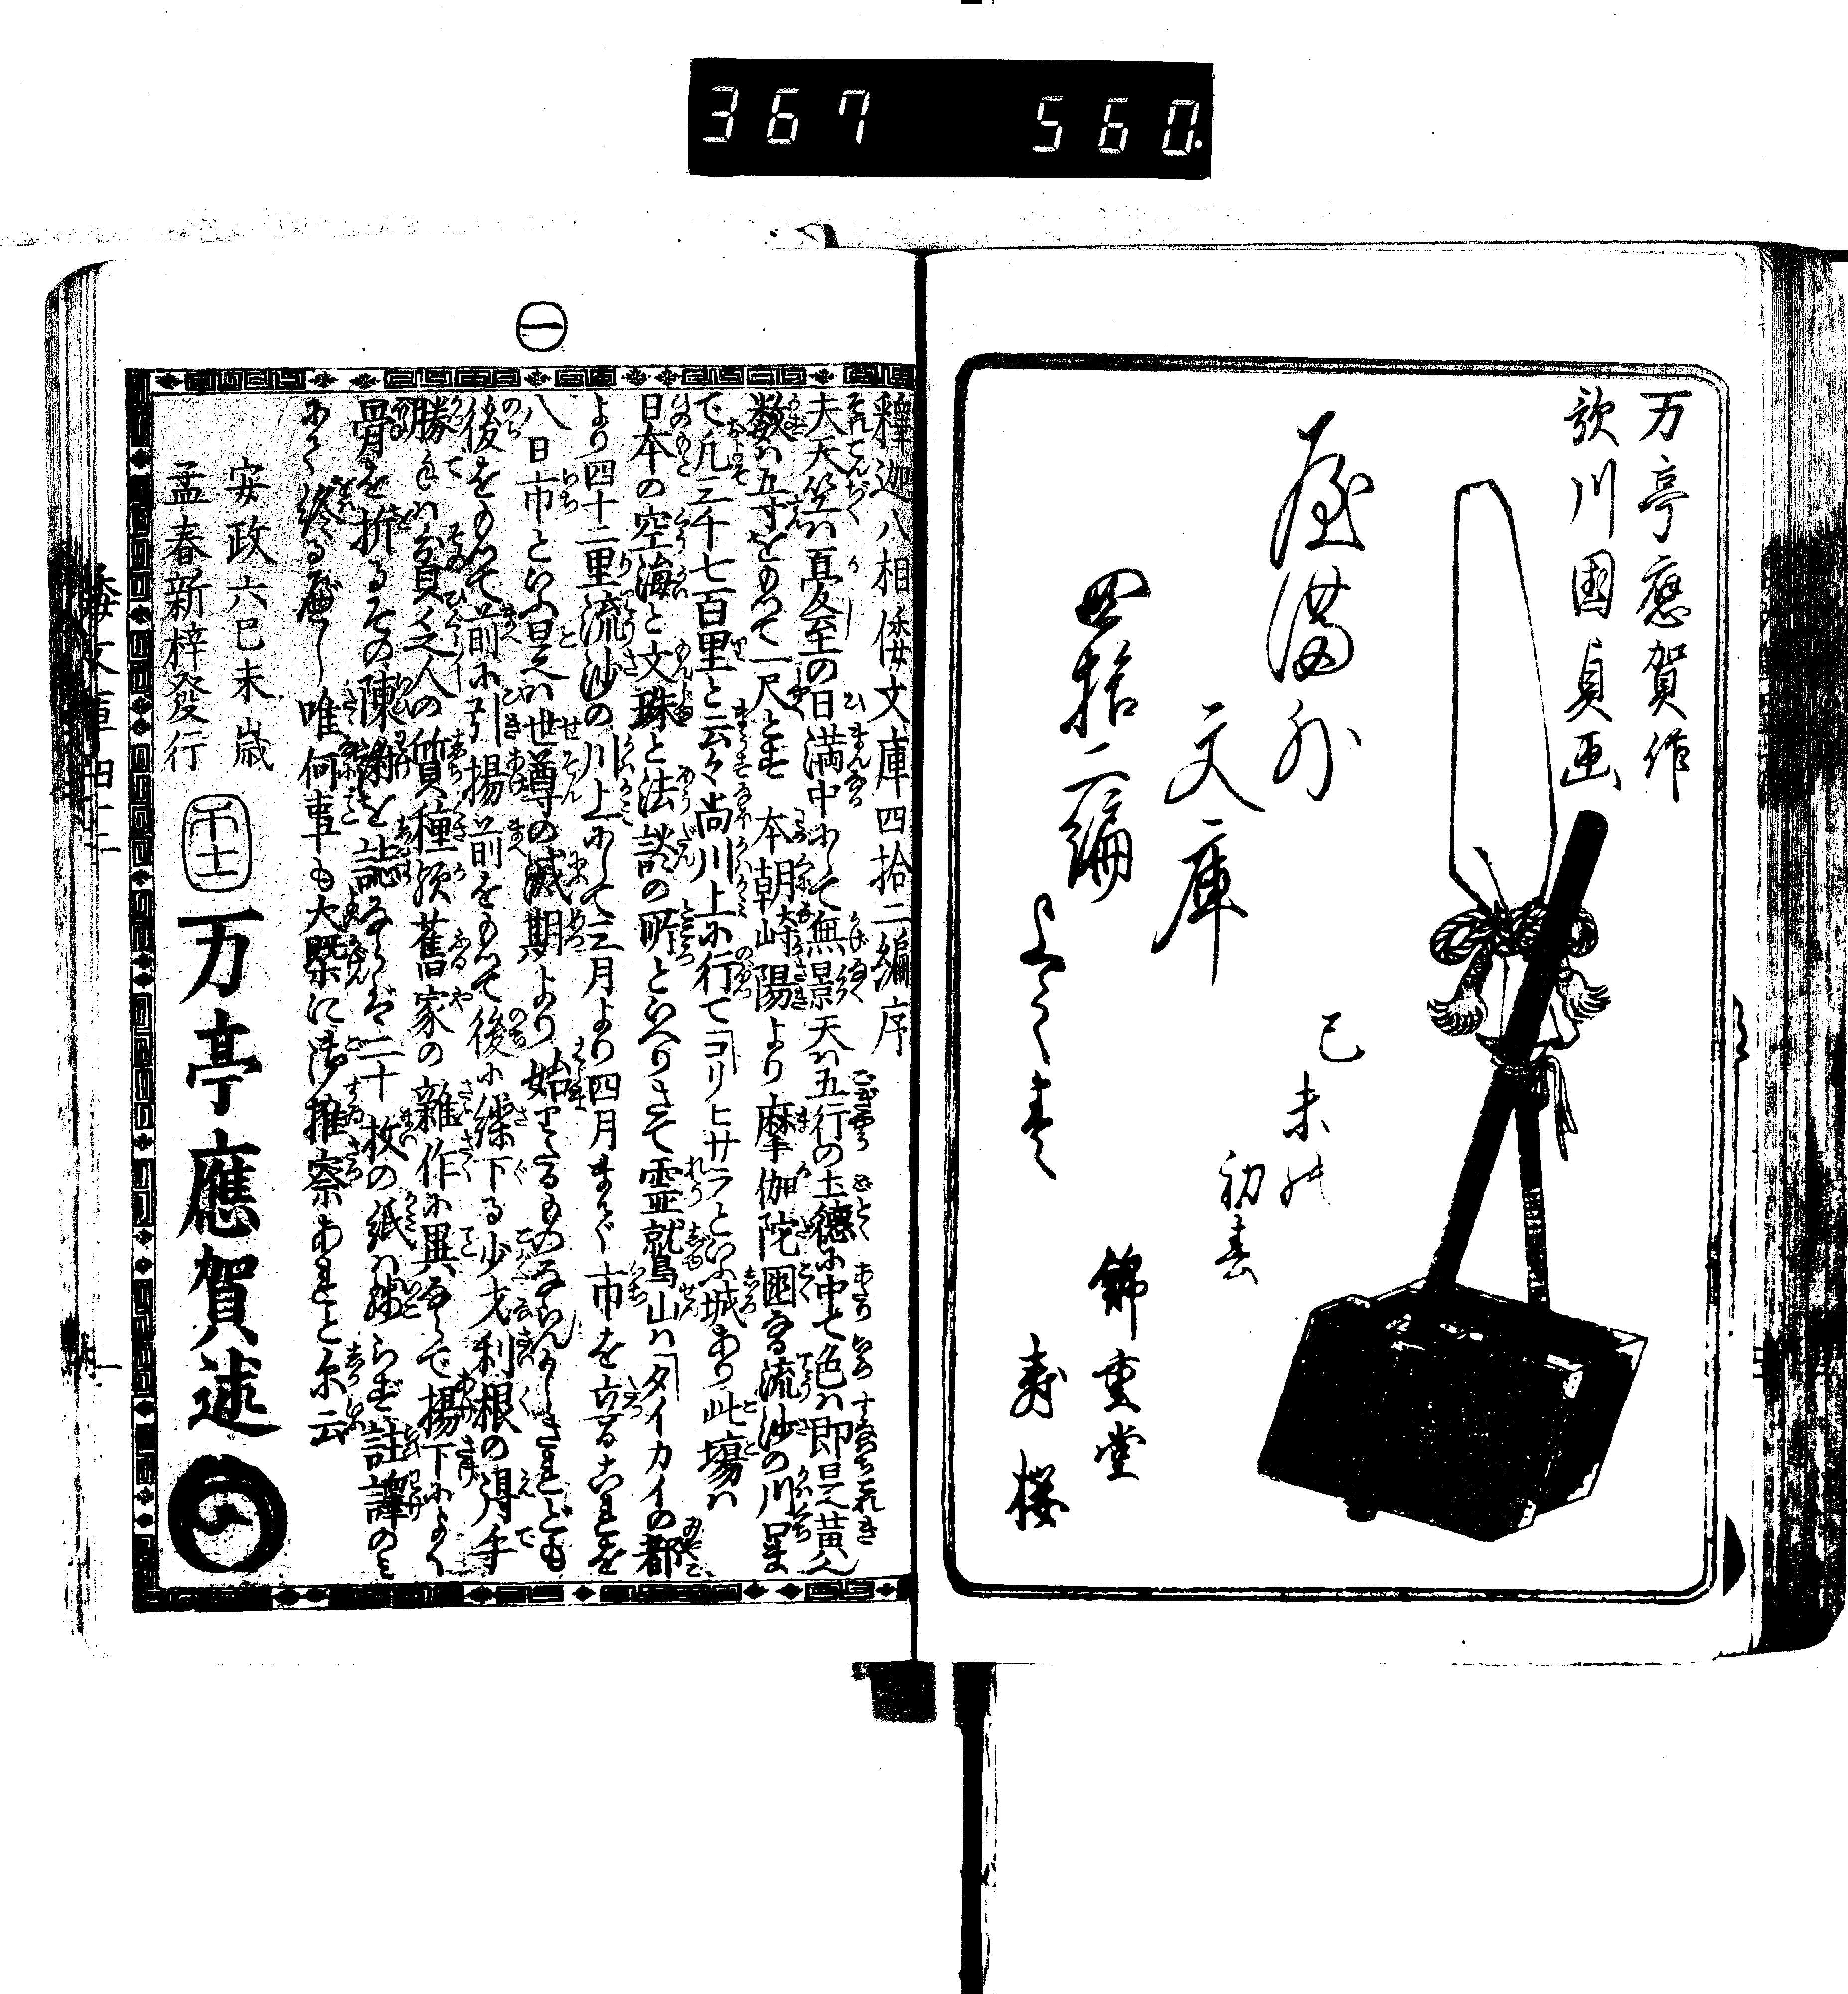 367 560.
万亭應賀作
歌川國貞画
屋満外
文庫
四拾二編
上之巻
己未の
初春
錦重堂
寿梓
一
釋迦八相倭文庫四拾二編序
夫天竺ハ夏至の日満中にして無景天ハ五行の土徳に中て色ハ即是黄
数ハ五寸をもつて一尺とす 本朝崎陽より摩伽陀國なる流沙の川口ま
で凡三千七百里と云々尚川上に行てコリヒサラといふ城あり此塲ハ
日本の空海と文珠と法談の所といへりさて霊鷲山ハタイカイの都
より四十二里流沙の川上にして三月より四月まで市を立るこれを
八日市といふ是ハ世尊の滅期より始りたるものならんかしされども
後をもつて前に引揚前をもつて後に繰下る少才利根の得手
勝手ハ貧乏人の質種殊舊家の雜作に異ならで揚下によく
骨を折るその陳謝を誌ならず二十枚の紙ハ残らず註譯のみ
にて終るべし唯何事も大槩に御推察あれと尓云
安政六己未歳
孟春新梓發行
万亭應賀述
倭文庫四十二
一